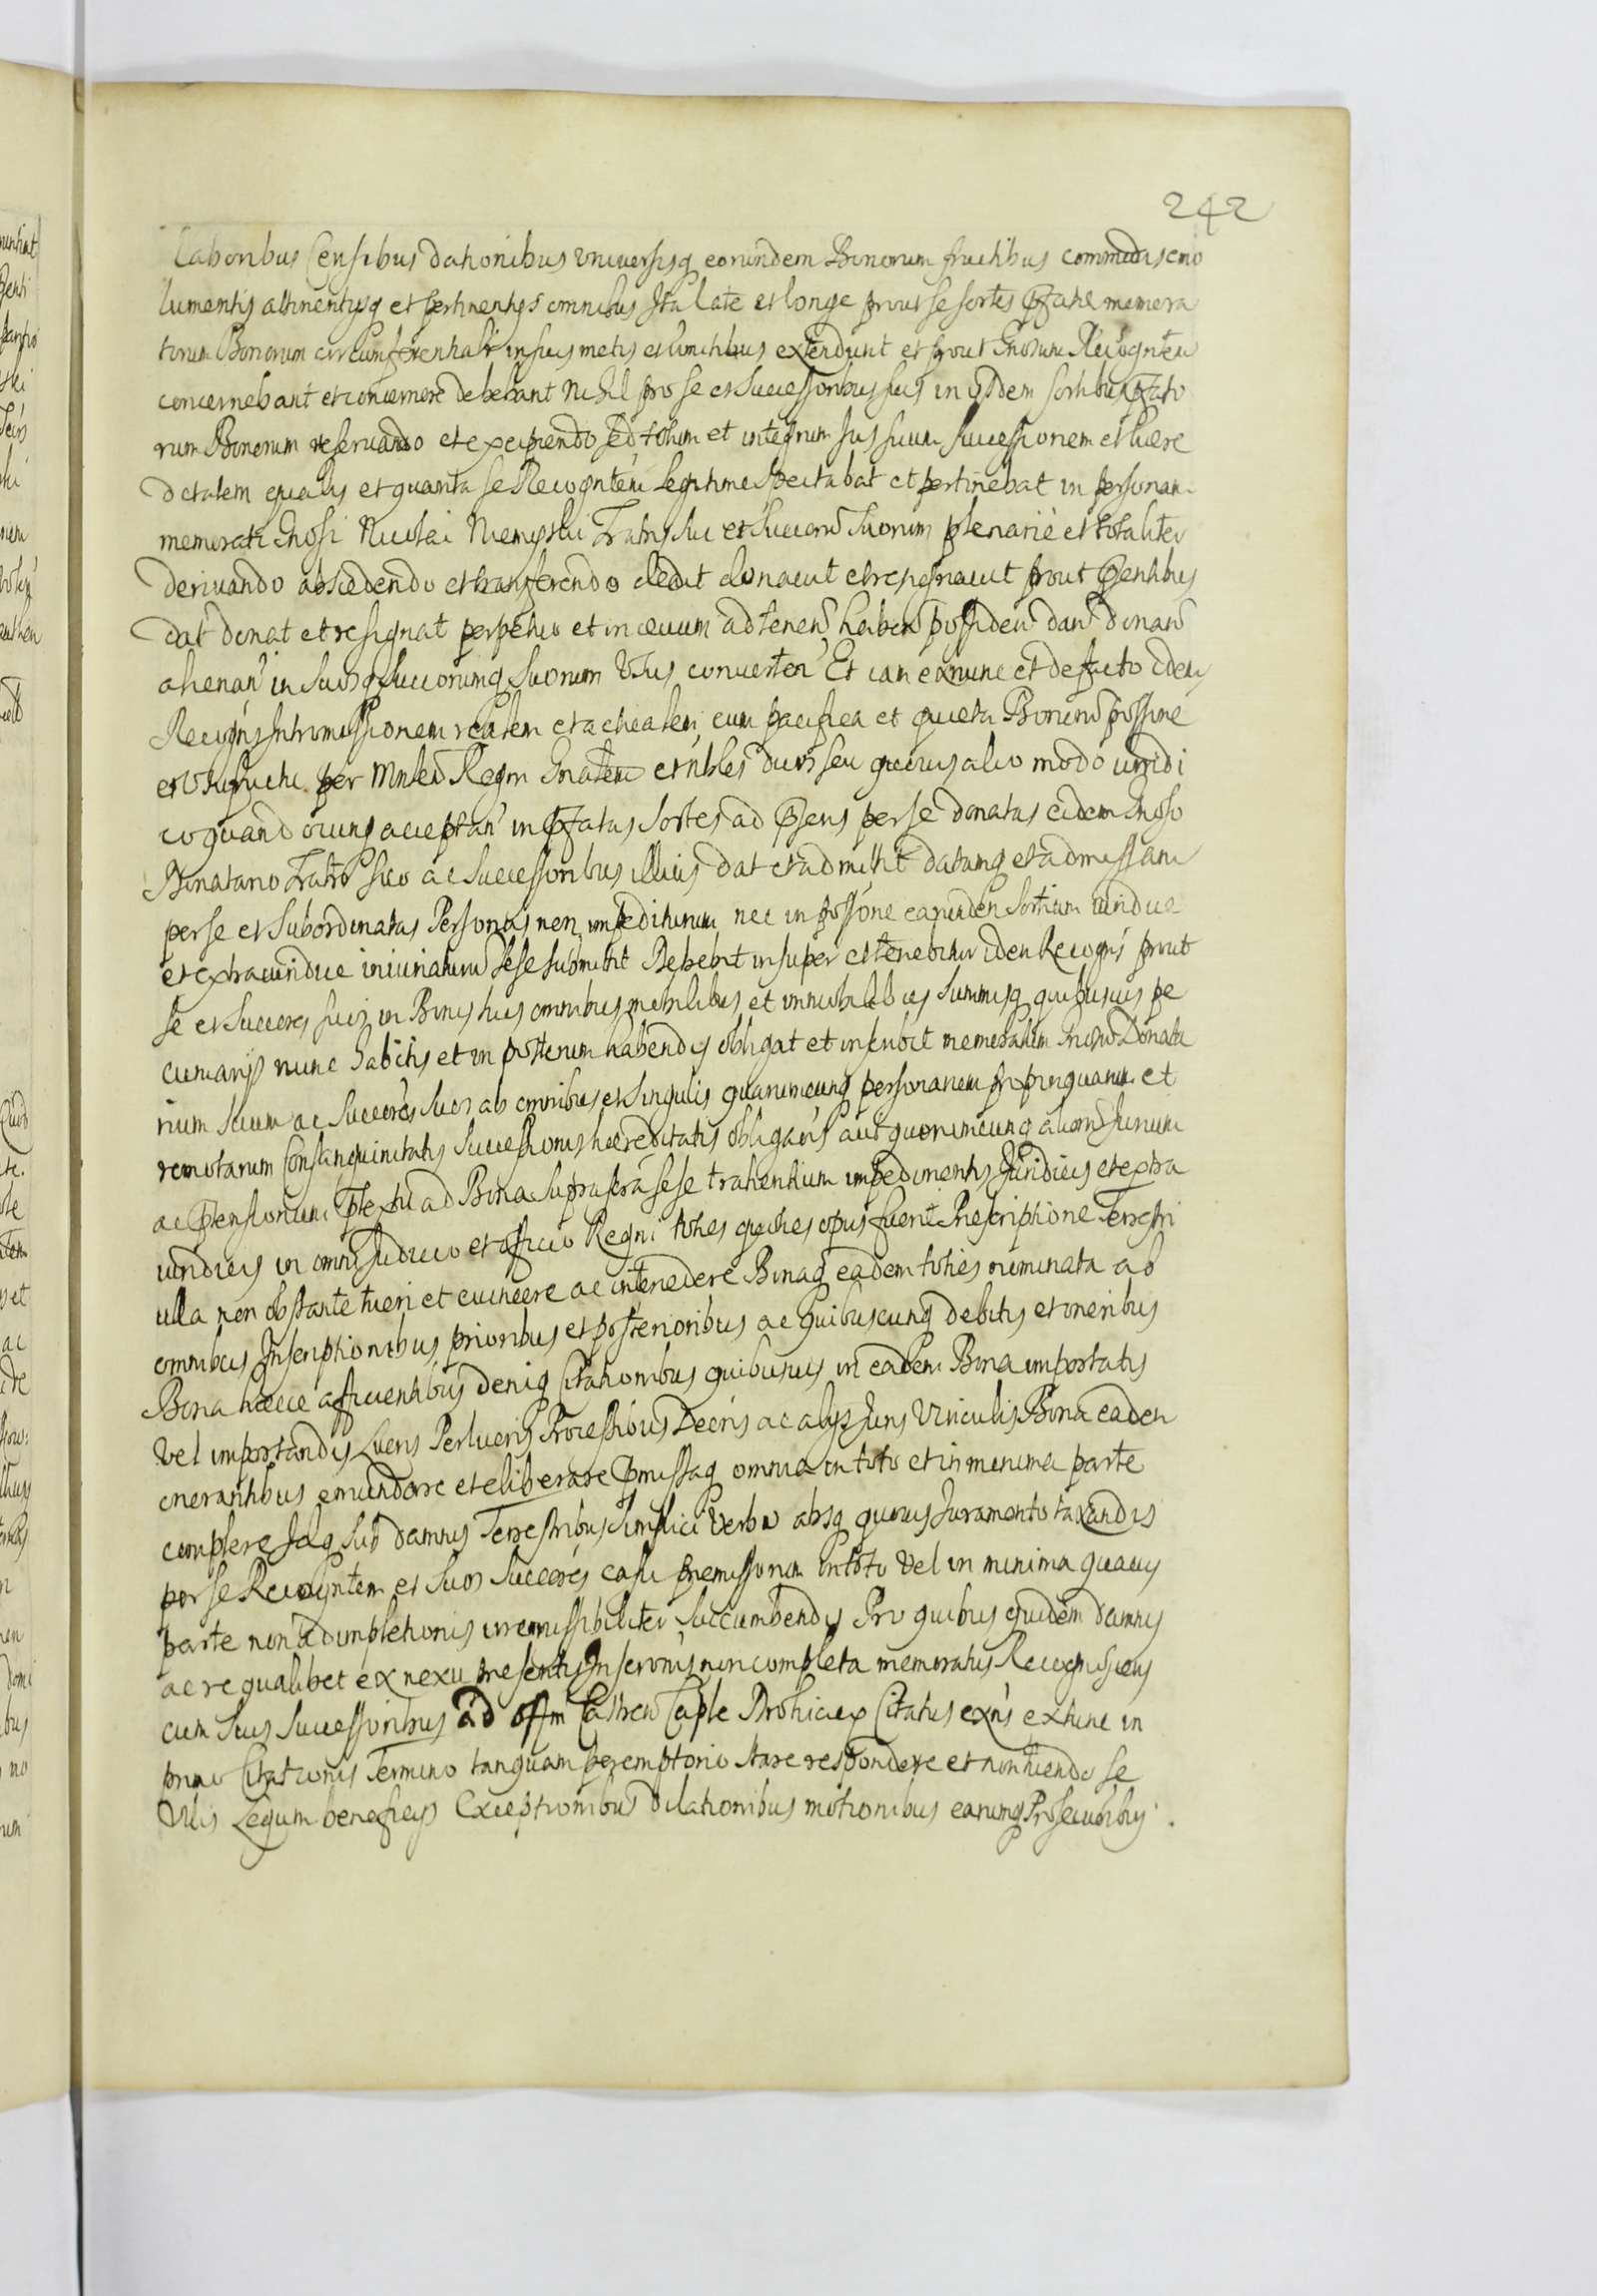 242
laboribus Censibus dationibus universisq eorundem Bonorum fructibus commodis emo
lumentis attinentysq et pertinentys omnibus Ita late et longe prout se sortes pfatae memora
torum Bonorum circumferentialr in suis metis et limitibus extendunt et prout Gnosum Recognten
concernebant et concernere debebant Nihil pro se et Successoribus suis in ijsdem sortibus pfato
rum Bonorum reservando et excipiendo sed totum et integrum Jus suum Successionem et haere
ditatem equalis et quanta se Recognten legitime Spectabat et pertinebat in personam
memorati Gnosi Nicolai Fratris sui et Succorum Suorum plenarie et totaliter
derivando abscedendo et transferendo dedit donavit et resignavit prout psentibus
dat donat et resignat perpetuo et in aevum ad tenen haben possiden dan donan
alienan in Suosq Succorumq Suorum Usus converten Et iam exnunc et de facto idem
Recogns Intromissionem realem et actualem cum pacifica et quieta Bonorum possione
et Usufructu per Mnlem Regni Gnalem et nbles duos seu quovis alio modo iuridi
co quandocunq acceptan in pfatas Sortes ad psens per se donatas eidem Gnoso
Donatario Fratri suo ac Successoribus illius dat et admittit datamq et admissam
per se et Subordinatas Personas non impediturum nec in possone earunden Sortium iuridice
et extraiuridice iniuriaturum Sese submittit Debebit insuper et tenebitur idem Recogns prout
se et Succores suos in Bonis suis omnibus mobilibus et immobilibus Summisq quibusvis pe
cuniarijs nunc habitis et in posterum habendis obligat et inscribit memoratum Gnosum Donata
rium Suum ac Succores Suos ab omnibus et Singulis quarumcunq personarum propinquarum et
remotarum Consanguinitatis Successionis haereditatis obligaonis aut quorumcunq aliorum Jurium
ac ptensionum ptextu ad Bona Suprascra sese trahentium impedimentis Juridicis et extra
iuridicis in omni Judicio et officio Regni toties quoties opus fuerit Prescriptione Terrestri
ulla non obstante tueri et evincere ac intercedere Bonaq eadem toties nominata ab
omnibus Inscriptionibus prioribus et posterioribus ac quibuscunq debitis et oneribus
Bona haecce afficientibus deniq Citationibus quibusvis in eadem Bona importatis
vel importandis Lucris Perlucris Processibus Decris ac alijs Juris Vinculis Bona eadem
onerantibus emundare et eliberare pmissaq omnia in toto et in minima parte
complere Idq Sub damnis Terrestribus Simplici Verbo absq quovis Juramento taxandis
per se Recogntem et Suos Succores casu premissorum in toto vel in minima quavis
parte non adimpletionis irremissibiliter Succumbendis Pro quibus quidem damnis
ac re qualibet ex nexu presentis Inscronis non completa memoratus Recognoscens
cum Suis Successoribus ad offm Castren Caple Citatus exns extunc in
primo Citationis Termino tanquam peremptorio stare respondere et non tuendo se
Ullis Legum beneficijs Exceptionibus dilationibus motionibus earumq Prosecutibus